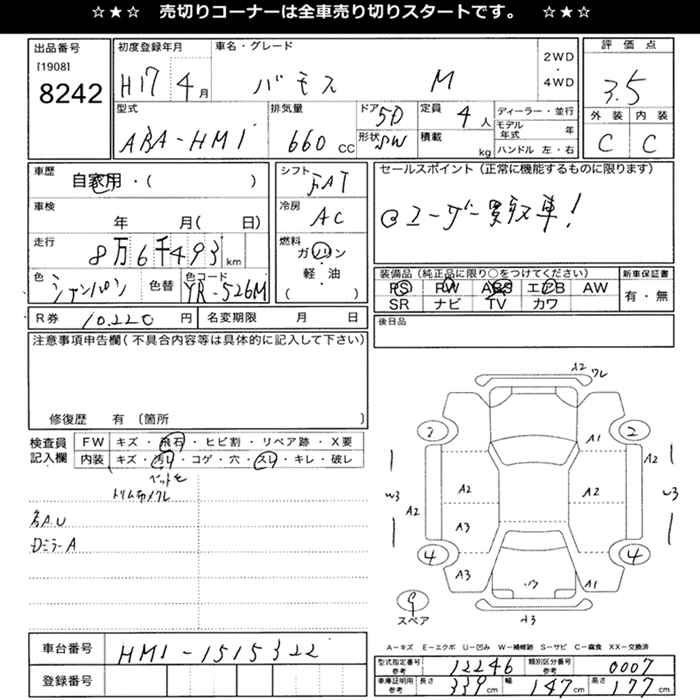 ☆★☆ 売切りコーナーは全車売り切りスタートです。 ☆★☆
出品番号
[1908]
8242
初度登録年月
H17 4月
車名・グレード
バモス M
2WD
・
4WD
評価点
3.5
外装 内装
C C
型式
ABA-HM1
排気量
660 CC
ドア 5D
形状 SW
定員 4人
積載 kg
ディーラー・並行
モデル年式 年
ハンドル 左・右
車歴
自家用・( )
車検
年 月( 日)
走行
8万6千493km
色 シャンパン
色替
色コード
YR-526M
シフト
FAT
冷房
AC
燃料
ガソリン
・
軽・油
( )
セールスポイント(正常に機能するものに限ります)
◎ユーザー買取車!
装備品(純正品に限り○をつけてください)
PS PW ABS エアB AW
SR ナビ TV カワ
新車保証書
有・無
R券 10.220円
名変期限 月 日
後日品
注意事項申告欄(不具合内容等は具体的に記入して下さい)
修復歴 有 〔箇所 〕
検査員
記入欄
FW キズ・飛石・ヒビ割・リペア跡・X要
内装 キズ・汚レ・コゲ・穴・スレ・キレ・破レ
A2 ワレ
2 A1 2
A2 A2
W3 A2 A2 A2 W3
A3
4 4
A3 A1
A3
スペア
A-キズ E-エクボ U-凹み W-補修跡 S-サビ C-腐食 XX-交換済
車台番号 HM1-1515322
登録番号
型式指定番号 参考 12246
類別区分番号 参考 0007
車庫証明用 参考 長さ 339cm 幅 147cm 高さ 177cm